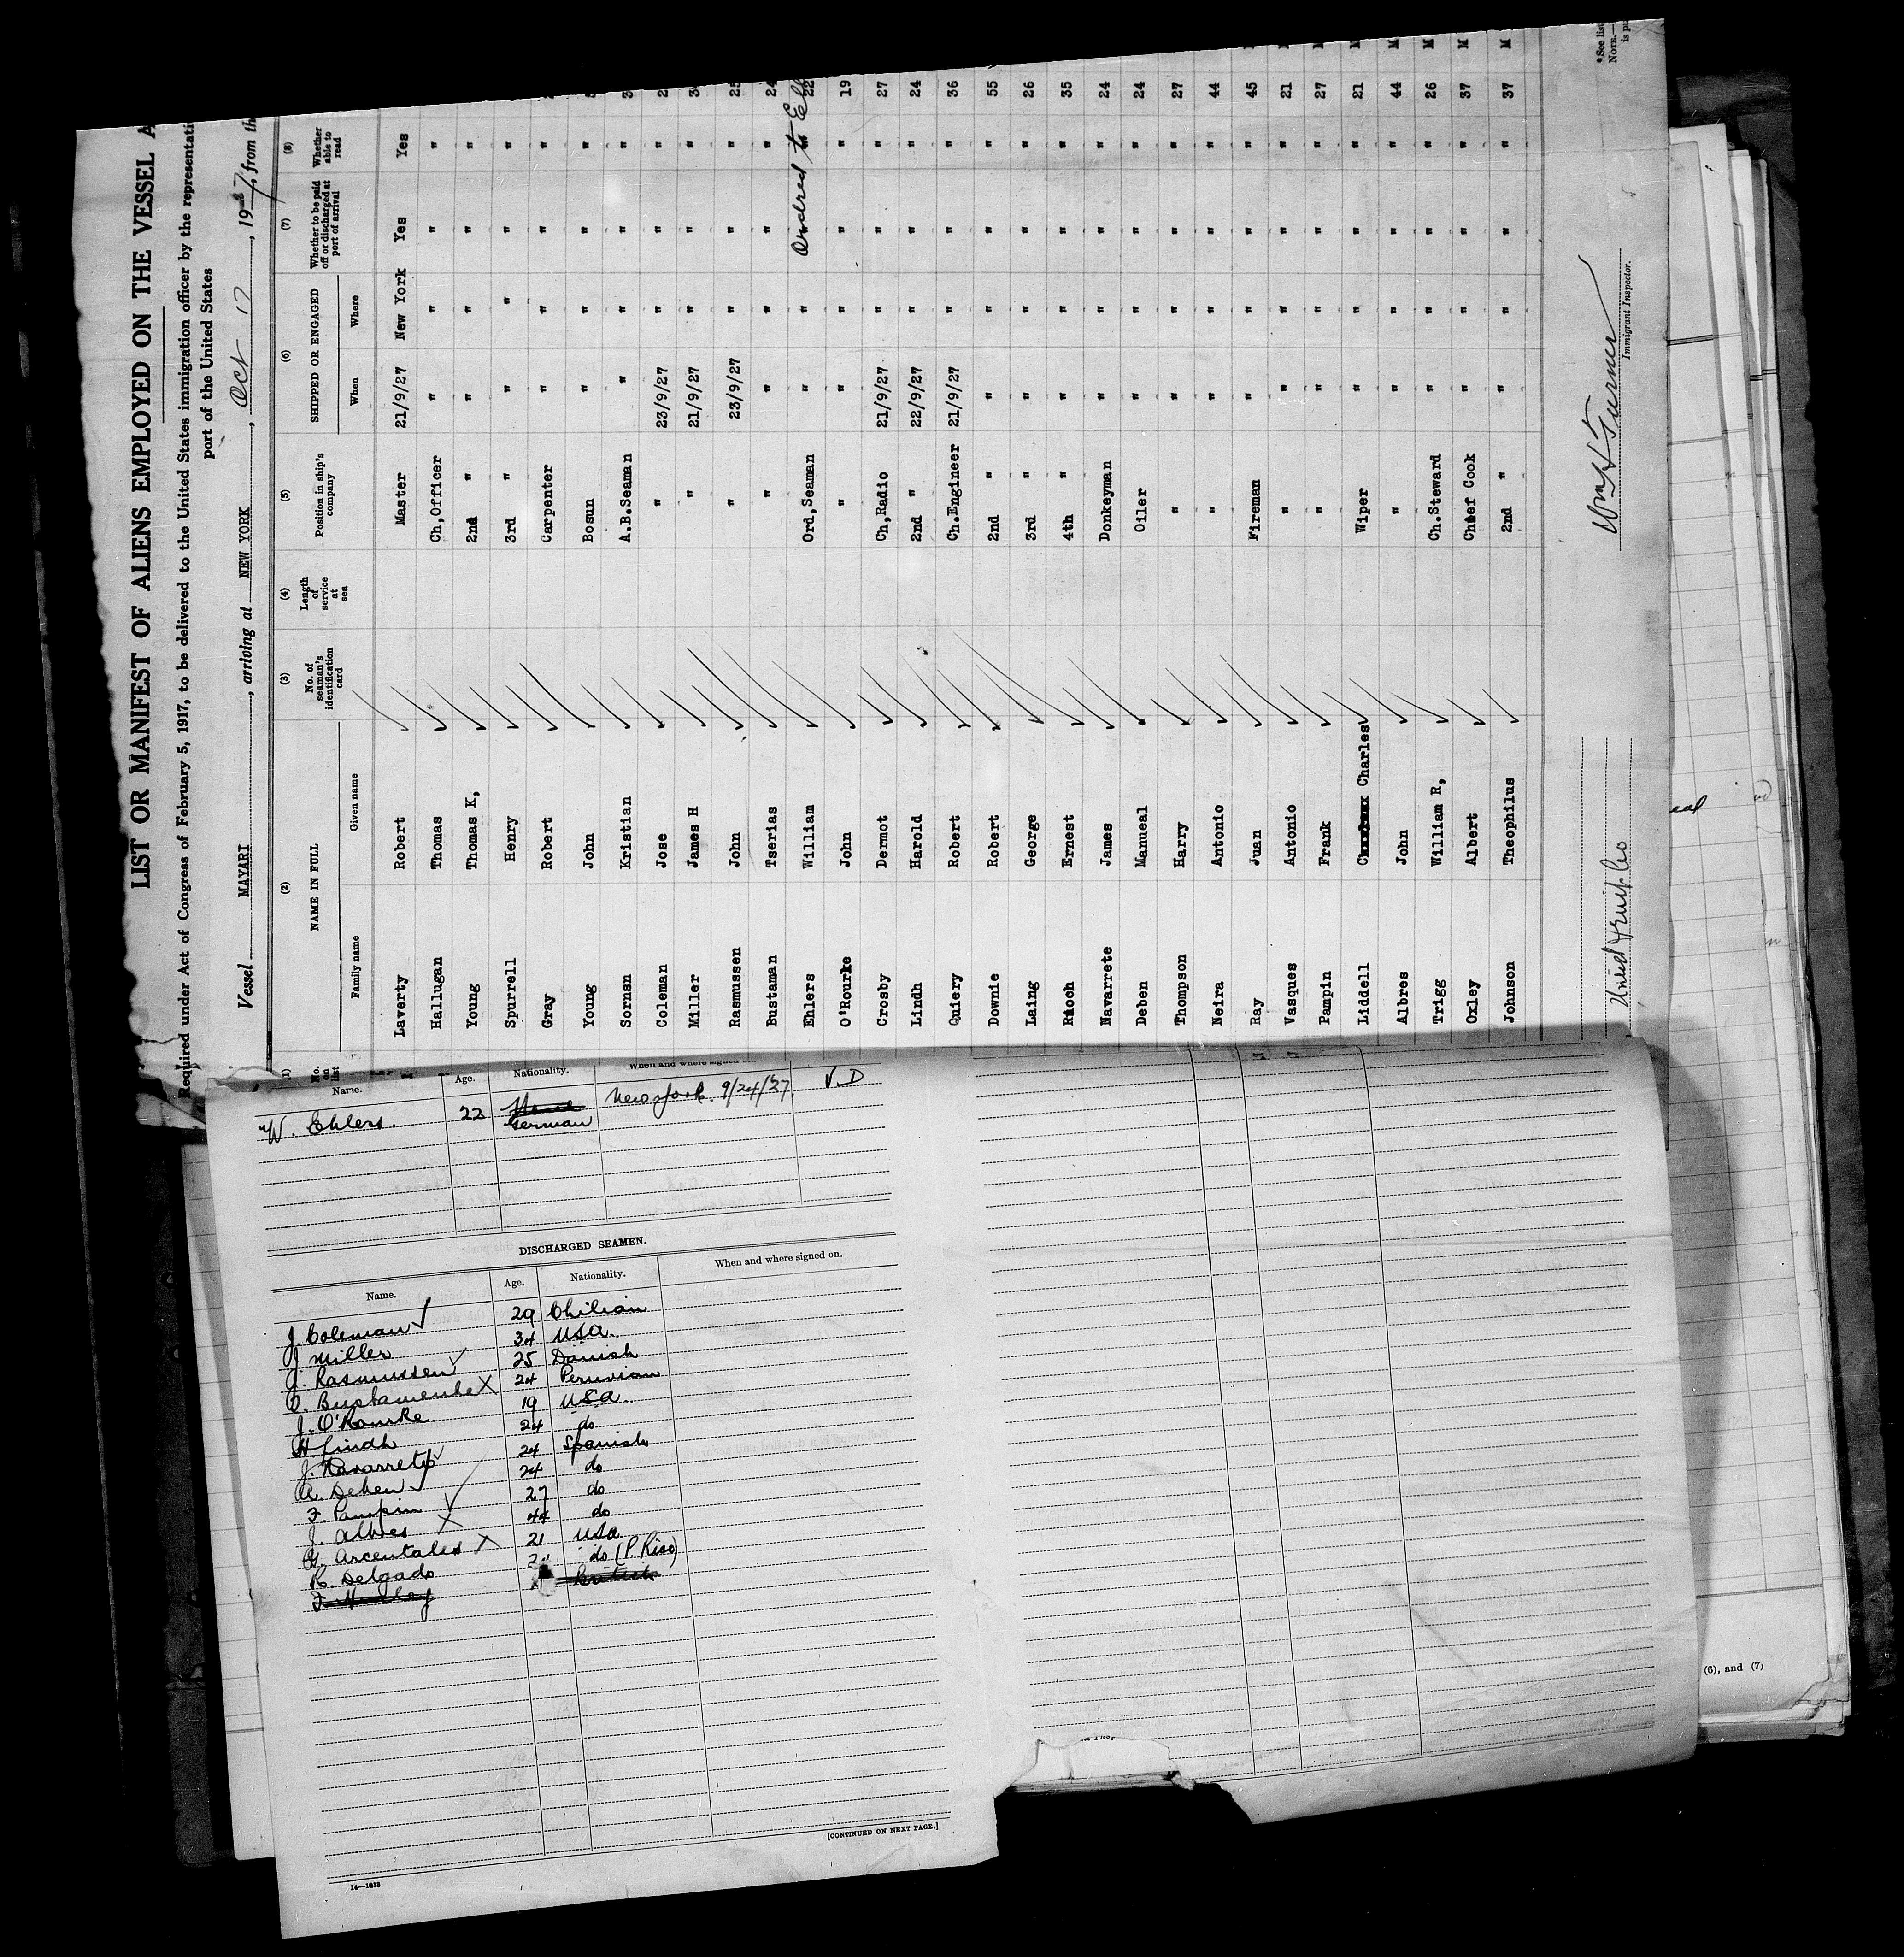 LIST OR MANIFEST OF ALIENS EMPLOYED ON THE VESSEL A
Required under Act of Congress of February 5, 1917, to be delivered to the United States immigration officer by the representati
port of the United States
Vessel MAYARI, arriving at NEW YORK, Oct 12, 1927, from th
(1) (2) (3) (4) (5) (6) (7) (8)
No. on list NAME IN FULL No. of seaman's identification card Length of service at sea Position in ship's company SHIPPED OR ENGAGED Whether to be paid off or discharged at port of arrival Whether able to read
Family name Given name When Where
Laverty Robert Master 21/9/27 New York Yes Yes
Hallugan Thomas Ch,Officer " " " "
Young Thomas K, 2nd " " " " "
Spurrell Henry 3rd " " " " "
Gray Robert Carpenter " " " "
Young John Bosun " " " "
Sornsn Kristian A.B.Seaman " " " "
Coleman Jose " 23/9/27 " " "
Miller James H " 21/9/27 " " "
Rasmussen John " 23/9/27 " " "
Bustaman Tserias " " " " " 24
Ehlers William Ord,Seaman " " " " 22
Ordred to El
O'Rourke John " " " " " 19
Crosby Dermot Ch,Radio 21/9/27 " " " 27
Lindh Harold 2nd " 22/9/27 " " " 24
Quiery Robert Ch.Engineer 21/9/27 " " " 36
Downie Robert 2nd " " " " " 55
Laing George 3rd " " " " " 26
Rioch Ernest 4th " " " " " 35
Navarrete James Donkeyman " " " " 24 M
Deben Manueal Oiler " " " " 24 M
Thompson Harry " " " " " 27 M
Neira Antonio " " " " " 44 M
Ray Juan Fireman " " " " 45
Vasques Antonio " " " " " 21
Pampin Frank " " " " " 27 M
Liddell Charles Wiper " " " " 21 M
Albres John " " " " " 44 M
Trigg William R, Ch.Steward " " " " 26 M
Oxley Albert Chief Cook " " " " 37 M
Johnson Theophilus 2nd " " " " " 37 M
United Fruit Co
Wm H Turner
Immigrant Inspector.
*See lis
NOTE.—
is pu
Name. Age. Nationality. When and where signed
W. Ehlers. 22 German New York. 9/24/27. V.D
DISCHARGED SEAMEN.
Name. Age. Nationality. When and where signed on.
J. Coleman 29 Chilian
J Miller 34 USA.
J. Rasmussen 25 Danish
Bustamente X 24 Peruvian
J. O'Rourke 19 USA.
H Lindh 24 do
J. Navarrete 24 Spanish
Deben 24 do
F. Pampin 27 do
J. Albres 44 do
G. Arcentales X 21 USA
R. Delgado do (P. Rico)
F British
[CONTINUED ON NEXT PAGE.]
14—1813
(6), and (7)